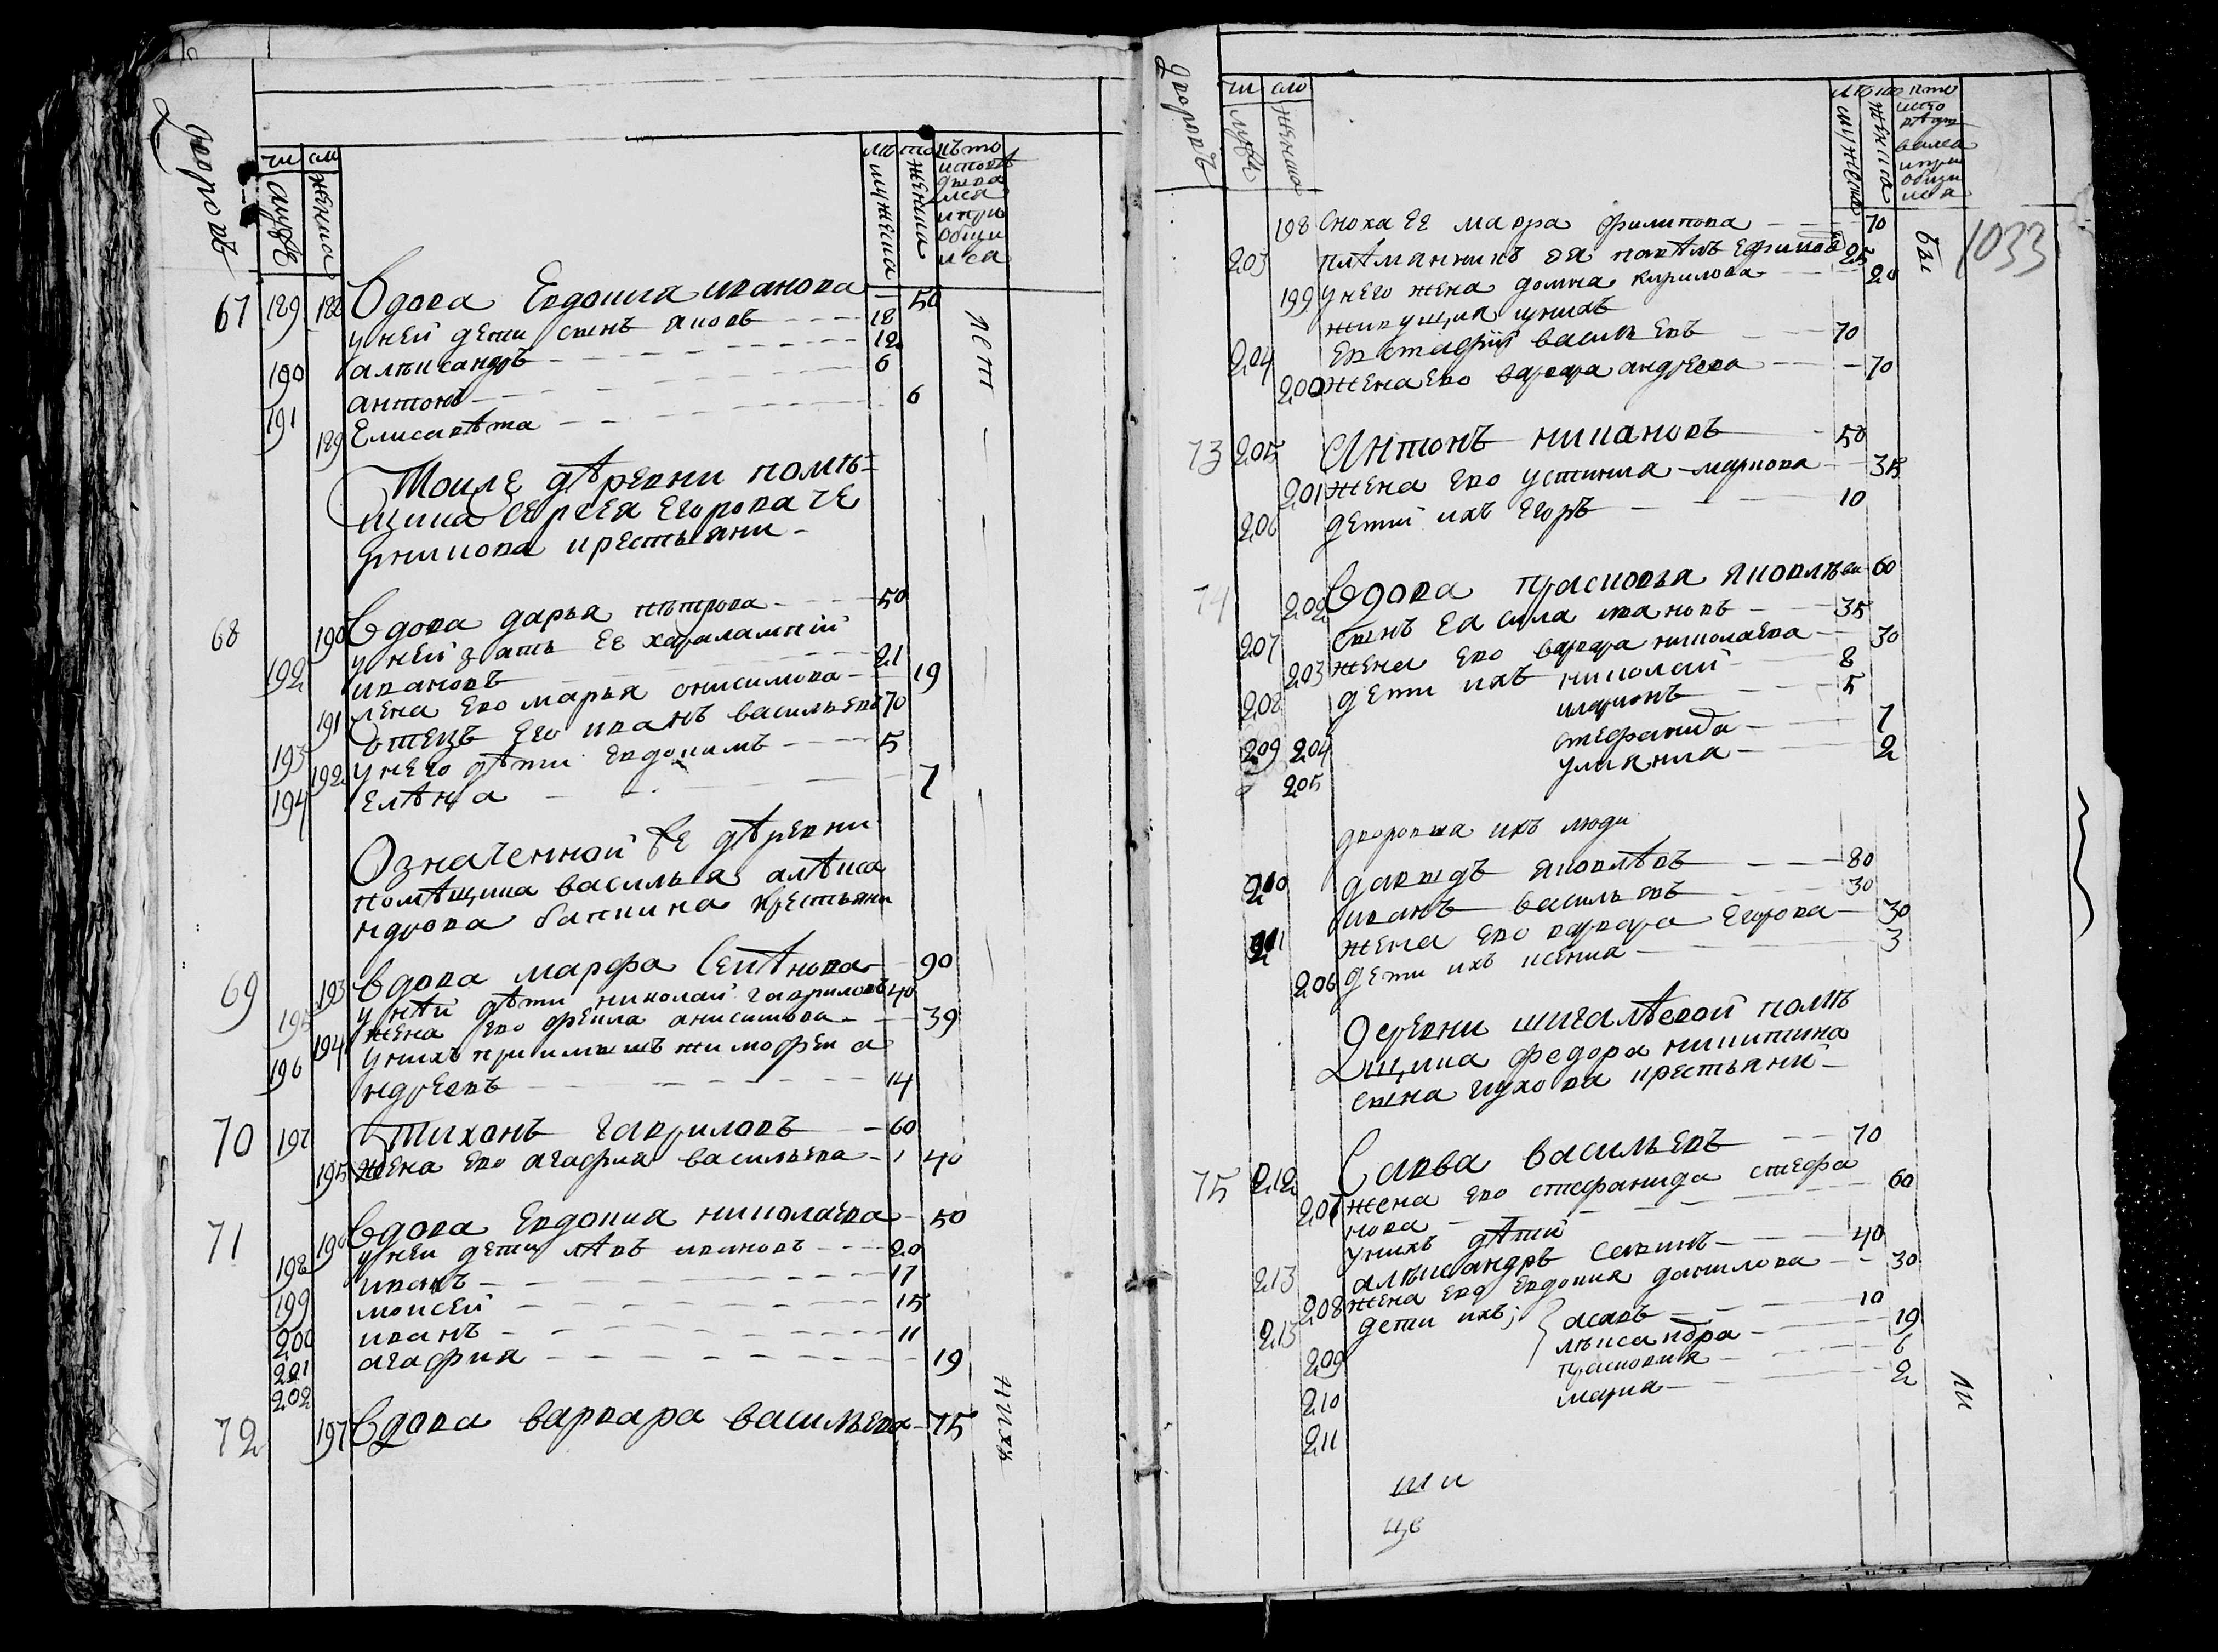 дворовъ
чи сло
мужес
женска
лѣ та
мужеска
женска
кѣто
исповѣ
дыва
лся
и при
общи
лся
67 189 188 Вдова Евдокиа иванова — 50
у ней дети сынъ яковъ — 18
190 алѣксандръ — 12
191 антонъ — 6
189 Елисавѣта — 6
Тоиже дѣревни помѣ-
щика сергея егорова че
крестьяни
68 190 Вдова дарья пѣтрова — 50
у ней зять ее харалампий
192 ивановъ — 21
191 жена ево марья онисимова — 19
193 отецъ его иванъ васильевъ 70
192 у него дѣти евдокимъ — 5
194 елѣна — 7
Означенной же дѣревни
помѣщика василья алѣкса
ндрова бапкина крестьяни
69 193 Вдова марфа семѣнова — 90
195 у нѣй дѣти николай гавриловъ 40
194 жена ево фекла анисимова — 39
196 у нихъ приимышъ тимофеи а
ндреевъ — 14
70 197 Тихонъ гавриловъ — 60
195 жена ево агафия васильева — 40
71 196 Вдова Евдокия николаева — 50
198 у неи дети лѣвъ ивановъ — 20
199 иванъ — 17
200 моисей — 15
201 иванъ — 11
202 агафия — 19
72 197 Вдова варвара васильева — 75
нихъ
дворовъ
чи сло
женска
лѣ та
мужеска
женска
кто
испо
вѣды
вался
и при
общи
лся
1033
198 сноха ее мавра филипова — 70
203 плѣманникъ ея павѣлъ ефимовъ 25
199 у него жена домна кирилова — 20
живущия у нихъ
204 Евстафий васильевъ — 70
200 жена ево варвара андреева — 70
бы
73 205 Антонъ никановъ — 50
201 жена ево устиниа маркова — 35
206 детии ихъ егоръ — 10
74 202 Вдова прасковья яковлѣва 60
207 сынъ еа сила ивановъ — 35
203 жена ево варвара николаева — 30
208 дети ихъ николаи — 8
209 иларионъ — 5
204 стефанида — 7
205 улияниа — 2
дворовыа ихъ люди
210 давыдъ яковлѣвъ — 80
211 иванъ васильевъ — 30
жена ево варвара егорова — 30
206 дети ихъ ксениа — 3
Деревни шигалѣевой помѣ
щика федора никитина
сына глухова крестьяни
75 212 Савва васильевъ — 70
207 жена ево стефанида стефа
нова — 60
у нихъ дѣтии
213 алѣксандръ савинъ — 40
208 жена ево евдокия данилова — 30
213 дети ихъ; асавъ — 10
209 лѣксандра — 19
210 прасковия — 6
211 мариа — 2
ли
ши
це